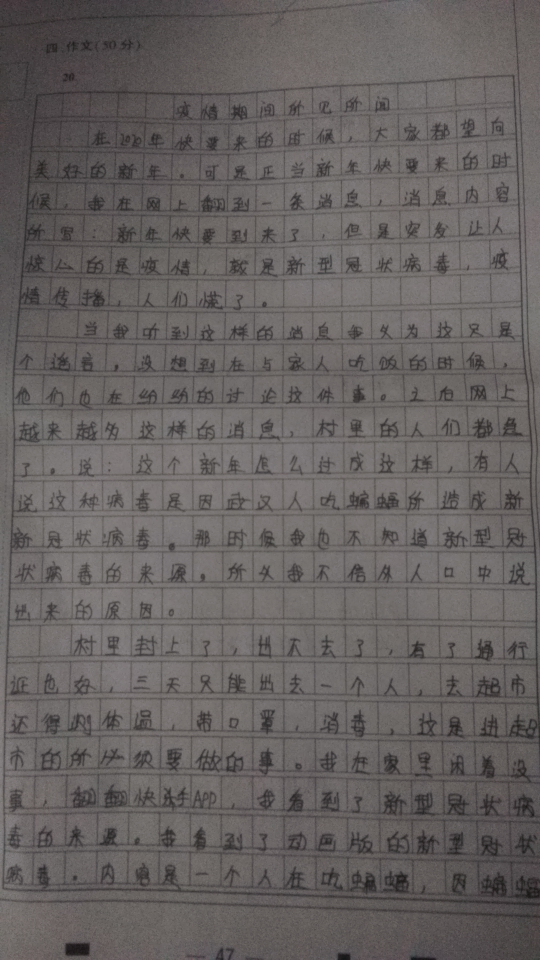 四 作文(50分)
20.
疫情期间所见所闻
在2020年快要来的时候，大家都望向
美好的新年。可是正当新年快要来的时
候，我在网上翻到一条消息，消息内容
所写：新年快要到来了，但是突发让人
惊人的是疫情，就是新型冠状病毒，疫
情传播，人们慌了。
当我听到这样的消息我以为这只是
个谣言，没想到在与家人吃饭的时候，
他们也在纷纷的讨论这件事。之后网上
越来越多这样的消息，村里的人们都急
了。说：这个新年怎么过成这样，有人
说这种病毒是因武汉人吃蝙蝠所造成新
新冠状病毒。那时候我也不知道新型冠
状病毒的来源。所以我不信外人口中说
出来的原因。
村里封上了，出不去了，有了通行
证也好，三天只能出去一个人，去超市
还得测体温，带口罩，消毒，这是进超
市的所必须要做的事。我在家里闲着没
事，翻翻快手APP，我看到了新型冠状病
毒的来源。我看到了动画版的新型冠状
病毒。内容是一个人在吃蝙蝠，因蝙蝠
— 47